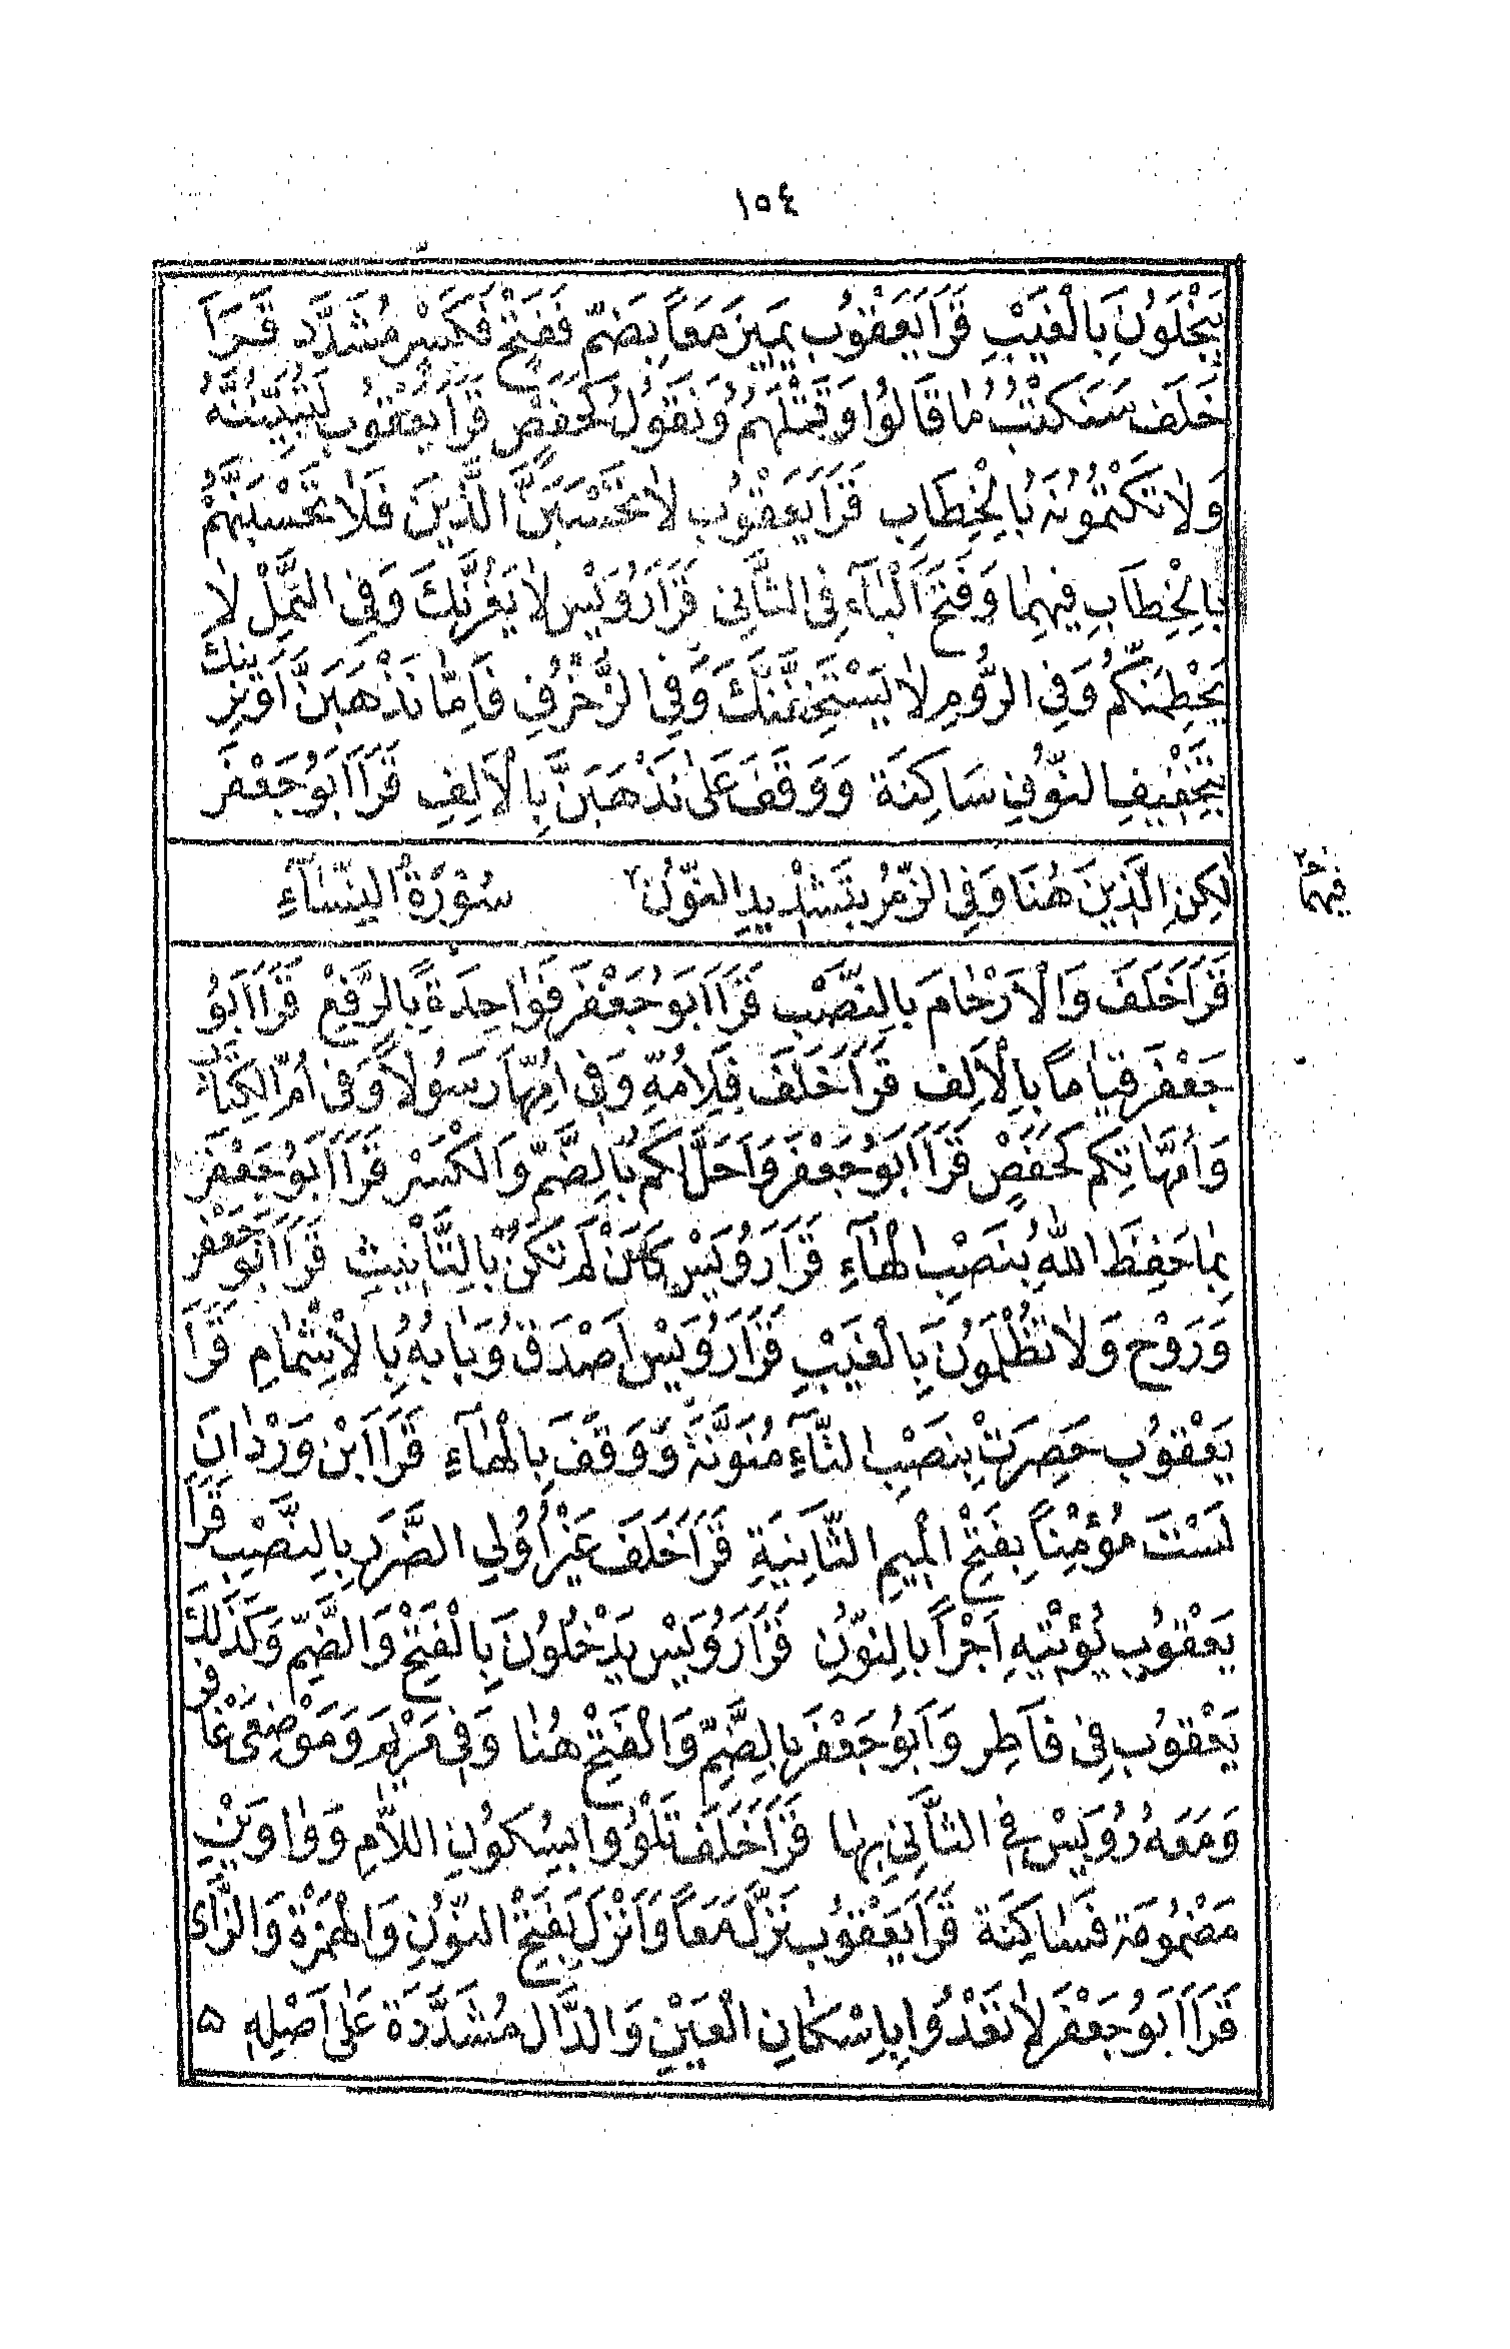 ١٥٤
يَبْخَلُونَ بِالْغَيْبِ قَرَاَ يَعْقُوبُ يَمِيزَ مَعَاً بِضَمّ فَفَتْحٍ فَكَسْرٍ مُشَدَّدٍ قَرَاَ
خَلَف سَنَكْتُبُ مَا قَالُوا وَقَتْلَهُمُ وَنَقُولُ كَحَفْصٍ قَرَاَ يَعْقُوبُ لَتُبَيِّنُنَّهُ
وَلَا تَكْتُمُونَهُ بِالْخِطَابِ قَرَاَ يَعْقُوبُ لَا تَحْسَبَنَّ الَّذِينَ فَلَا تَحْسَبَنَّهُمْ
بِالْخِطَابِ فِيهِمَا وَفَتْحَ الْبَآءِ فِي الثَّانِي قَرَاَ رُوَيْس لَا يَغُرَّنْكَ وَفِي النَّمْلِ لَا
يَحْطِمَنْكُمْ وَفِي الرُّومِ لَا يَسْتَخِفَّنْكَ وَفِي الزُّخْرُفِ فَاِمَّا نَذْهَبَنْ اَوْ نُرِيَنْكَ
بِتَخْفِيفِ النُّونِ سَاكِنَة وَوَقَفَ عَلَى نَذْهَبَنَّ بِالْاَلِفِ قَرَاَ اَبُو جَعْفَر
لَكِنِ الَّذِينَ هُنَا وَفِي الزُّمَر بِتَشْدِيدِ النُّونِ ٢ سُورَةُ النِّسَآءِ
فيهما ٢
قَرَاَ خَلَفَ وَالْاَرْحَامَ بِالنَّصْبِ قَرَاَ اَبُو جَعْفَر فَوَاحِدَةٌ بِالرَّفْعِ قَرَاَ اَبُو
جَعْفَر قِيَامًا بِالْاَلِف قَرَاَ خَلَفَ فَلِاُمِّهِ وَفِي اُمِّهَا رَسُولاً وَفِي اُمِّ الْكِتَابِ
وَاُمَّهَاتِكُم كَحَفْصٍ قَرَاَ اَبُو جَعْفَر وَاُحِلَّ لَكُم بِالضَّمِّ وَالْكَسْرِ قَرَاَ اَبُو جَعْفَر
بِمَا حَفِظَ اللهَ بِنَصْبِ الْهَآءِ قَرَاَ رُوَيْس كَاَنْ لَمْ تَكُنْ بِالتَّاْنِيثِ قَرَاَ اَبُو جَعْفَر
وَرَوْح وَلَا تُظْلَمُونَ بِالْغَيْبِ قَرَاَ رُوَيْس اَصْدَقُ وَبَابُهُ بِالْاِشْمَامِ قَرَاَ
يَعْقُوبُ حَصِرَتْ بِنَصْبِ التَّآءِ مُنَوَّنَةً وَوَقَفَ بِالْهَآءِ قَرَاَ ابْن وَرْدَانَ
لَسْتَ مُؤْمَنًا بِفَتْحِ الْمِيمِ الثَّانِيَةِ قَرَاَ خَلَفَ غَيْرَ اُولِي الضَّرَرِ بِالنَّصْبِ قَرَاَ
يَعْقُوبُ نُؤْتِيهِ اَجْرًا بِالنُّونِ قَرَاَ رُوَيْس يَدْخُلُونَ بِالْفَتْحِ وَالضَّمِّ وَكَذَلِكَ
يَعْقُوبُ فِي فَاطِرٍ وَاَبُو جَعْفَر بِالضَّمِّ وَالْفَتْحِ هُنَا وَفِي مَرْيَمَ وَمَوْضِعَيْ غَافِر
وَمَعَهُ رُوَيْس فِي الثَّانِي بِهَا قَرَاَ خَلَف تَلْوُوا بِسُكُونِ اللَّامِ وَوَاوَيْنِ
مَضْمُومَة فَسَاكِنَة قَرَاَ يَعْقُوب نَزَّلَ مَعًا وَاَنْزَلَ بِفَتْحِ النُّونِ وَالْهَمْزَةِ وَالزَّاى
قَرَاَ اَبُو جَعْفَر لَا تَعْدُّوا بِاِسْكَانِ الْعَيْنِ وَالدَّال مُشَدَّدَة عَلَى اَصْلِهِ ۵